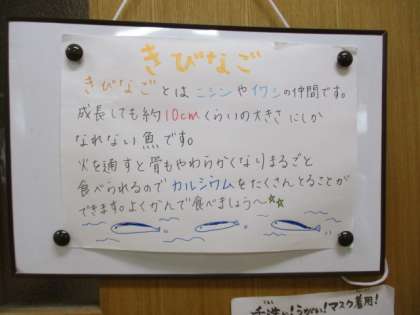 きびなご
きびなごとはニシンやイワシの仲間です。
成長しても約10cmくらいの大きさにしか
なれない魚です。
火を通すと骨もやわらかくなりまるごと
食べられるのでカルシウムをたくさんとることが
できます。よくかんで食べましょう〜☆☆
手洗い!うがい!マスク着用!